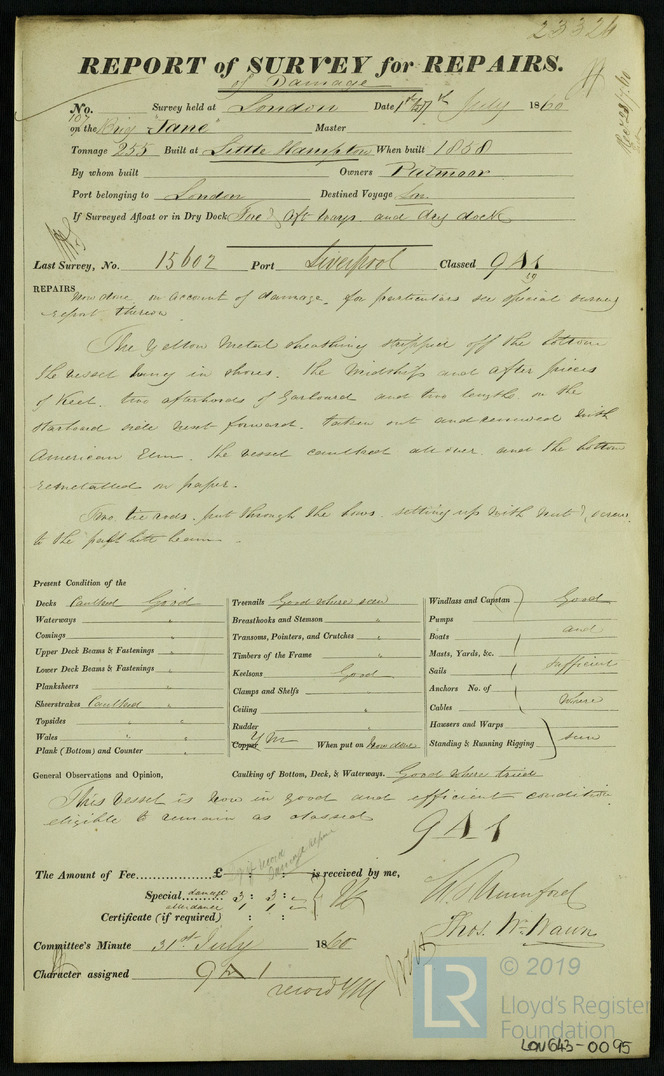 23324
REPORT of SURVEY for REPAIRS.
of Damage
No. 107 Survey held at London Date July 1860
on the Brig "Jane" Master
Tonnage 255 Built at Little Hampton When built 1858
By whom built Owners Patmoor
Port belonging to London Destined Voyage Lon
If Surveyed Afloat or in Dry Dock and dry dock
Last Survey, No. 15602 Port Liverpool Classed 9 A 1
REPAIRS now done on account of damage, for particulars see special
report thereon
The Yellow Metal sheathing stripped off the bottom
the vessel hung in shores. the Midship and after pieces
of Keel. two afterhoods of Garboard and two lengths on the
starboard side next forward. taken out and renewed with
American Elm. the vessel caulked all over and the bottom
remetalled on paper.
Two tie rods put through the bows setting up with nut &
to the beam
Present Condition of the
Decks Caulked Good
Waterways "
Comings "
Upper Deck Beams & Fastenings "
Lower Deck Beams & Fastenings "
Planksheers "
Sheerstrakes Caulked
Topsides " "
Wales " "
Plank (Bottom) and Counter " "
Treenails Good where seen
Breasthooks and Stemson "
Transoms, Pointers, and Crutches "
Timbers of the Frame "
Keelsons Good
Clamps and Shelfs "
Ceiling "
Rudder "
Y M
Copper When put on Now done
Windlass and Capstan Good
Pumps
Boats and
Masts, Yards, &c.
Sails sufficient
Anchors No. of
Cables where
Hawsers and Warps
Standing & Running Rigging seen
General Observations and Opinion, Caulking of Bottom, Deck, & Waterways. Good where tried
This vessel is now in good and efficient condition
eligible to remain as classed 9 A 1
The Amount of Fee £ : : is received by me,
Special damage 3 : 3 :
attendance 1 : 1 :
Certificate (if required) : :
Thos. Wm. Wawn
Committee's Minute 31st July 1860
Character assigned 9 A 1
record YM
© 2019
LR
Lloyd's Register
Foundation
LON643-0095